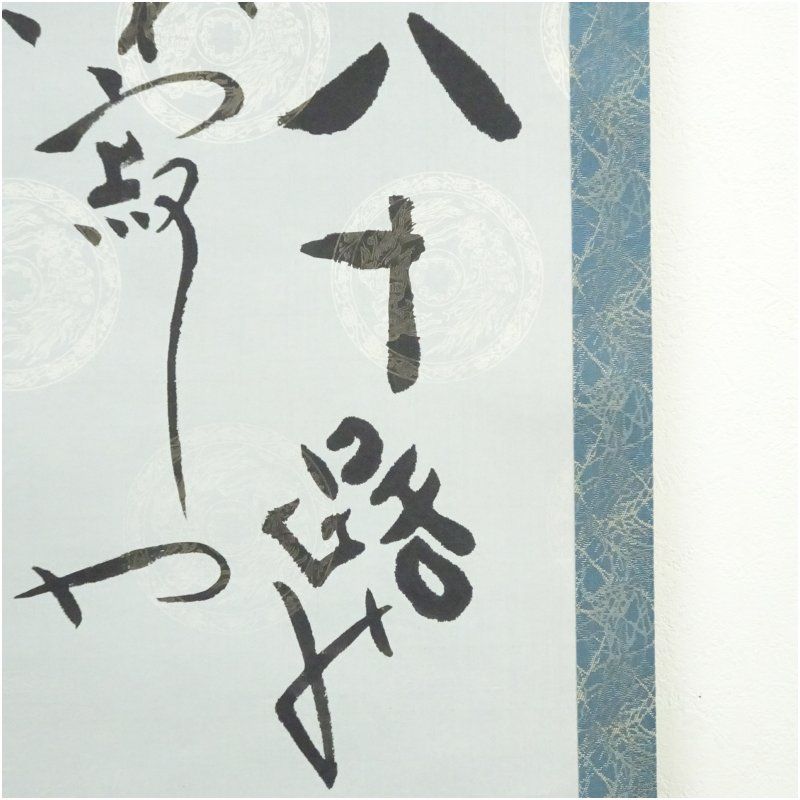 八十路み
寂しや